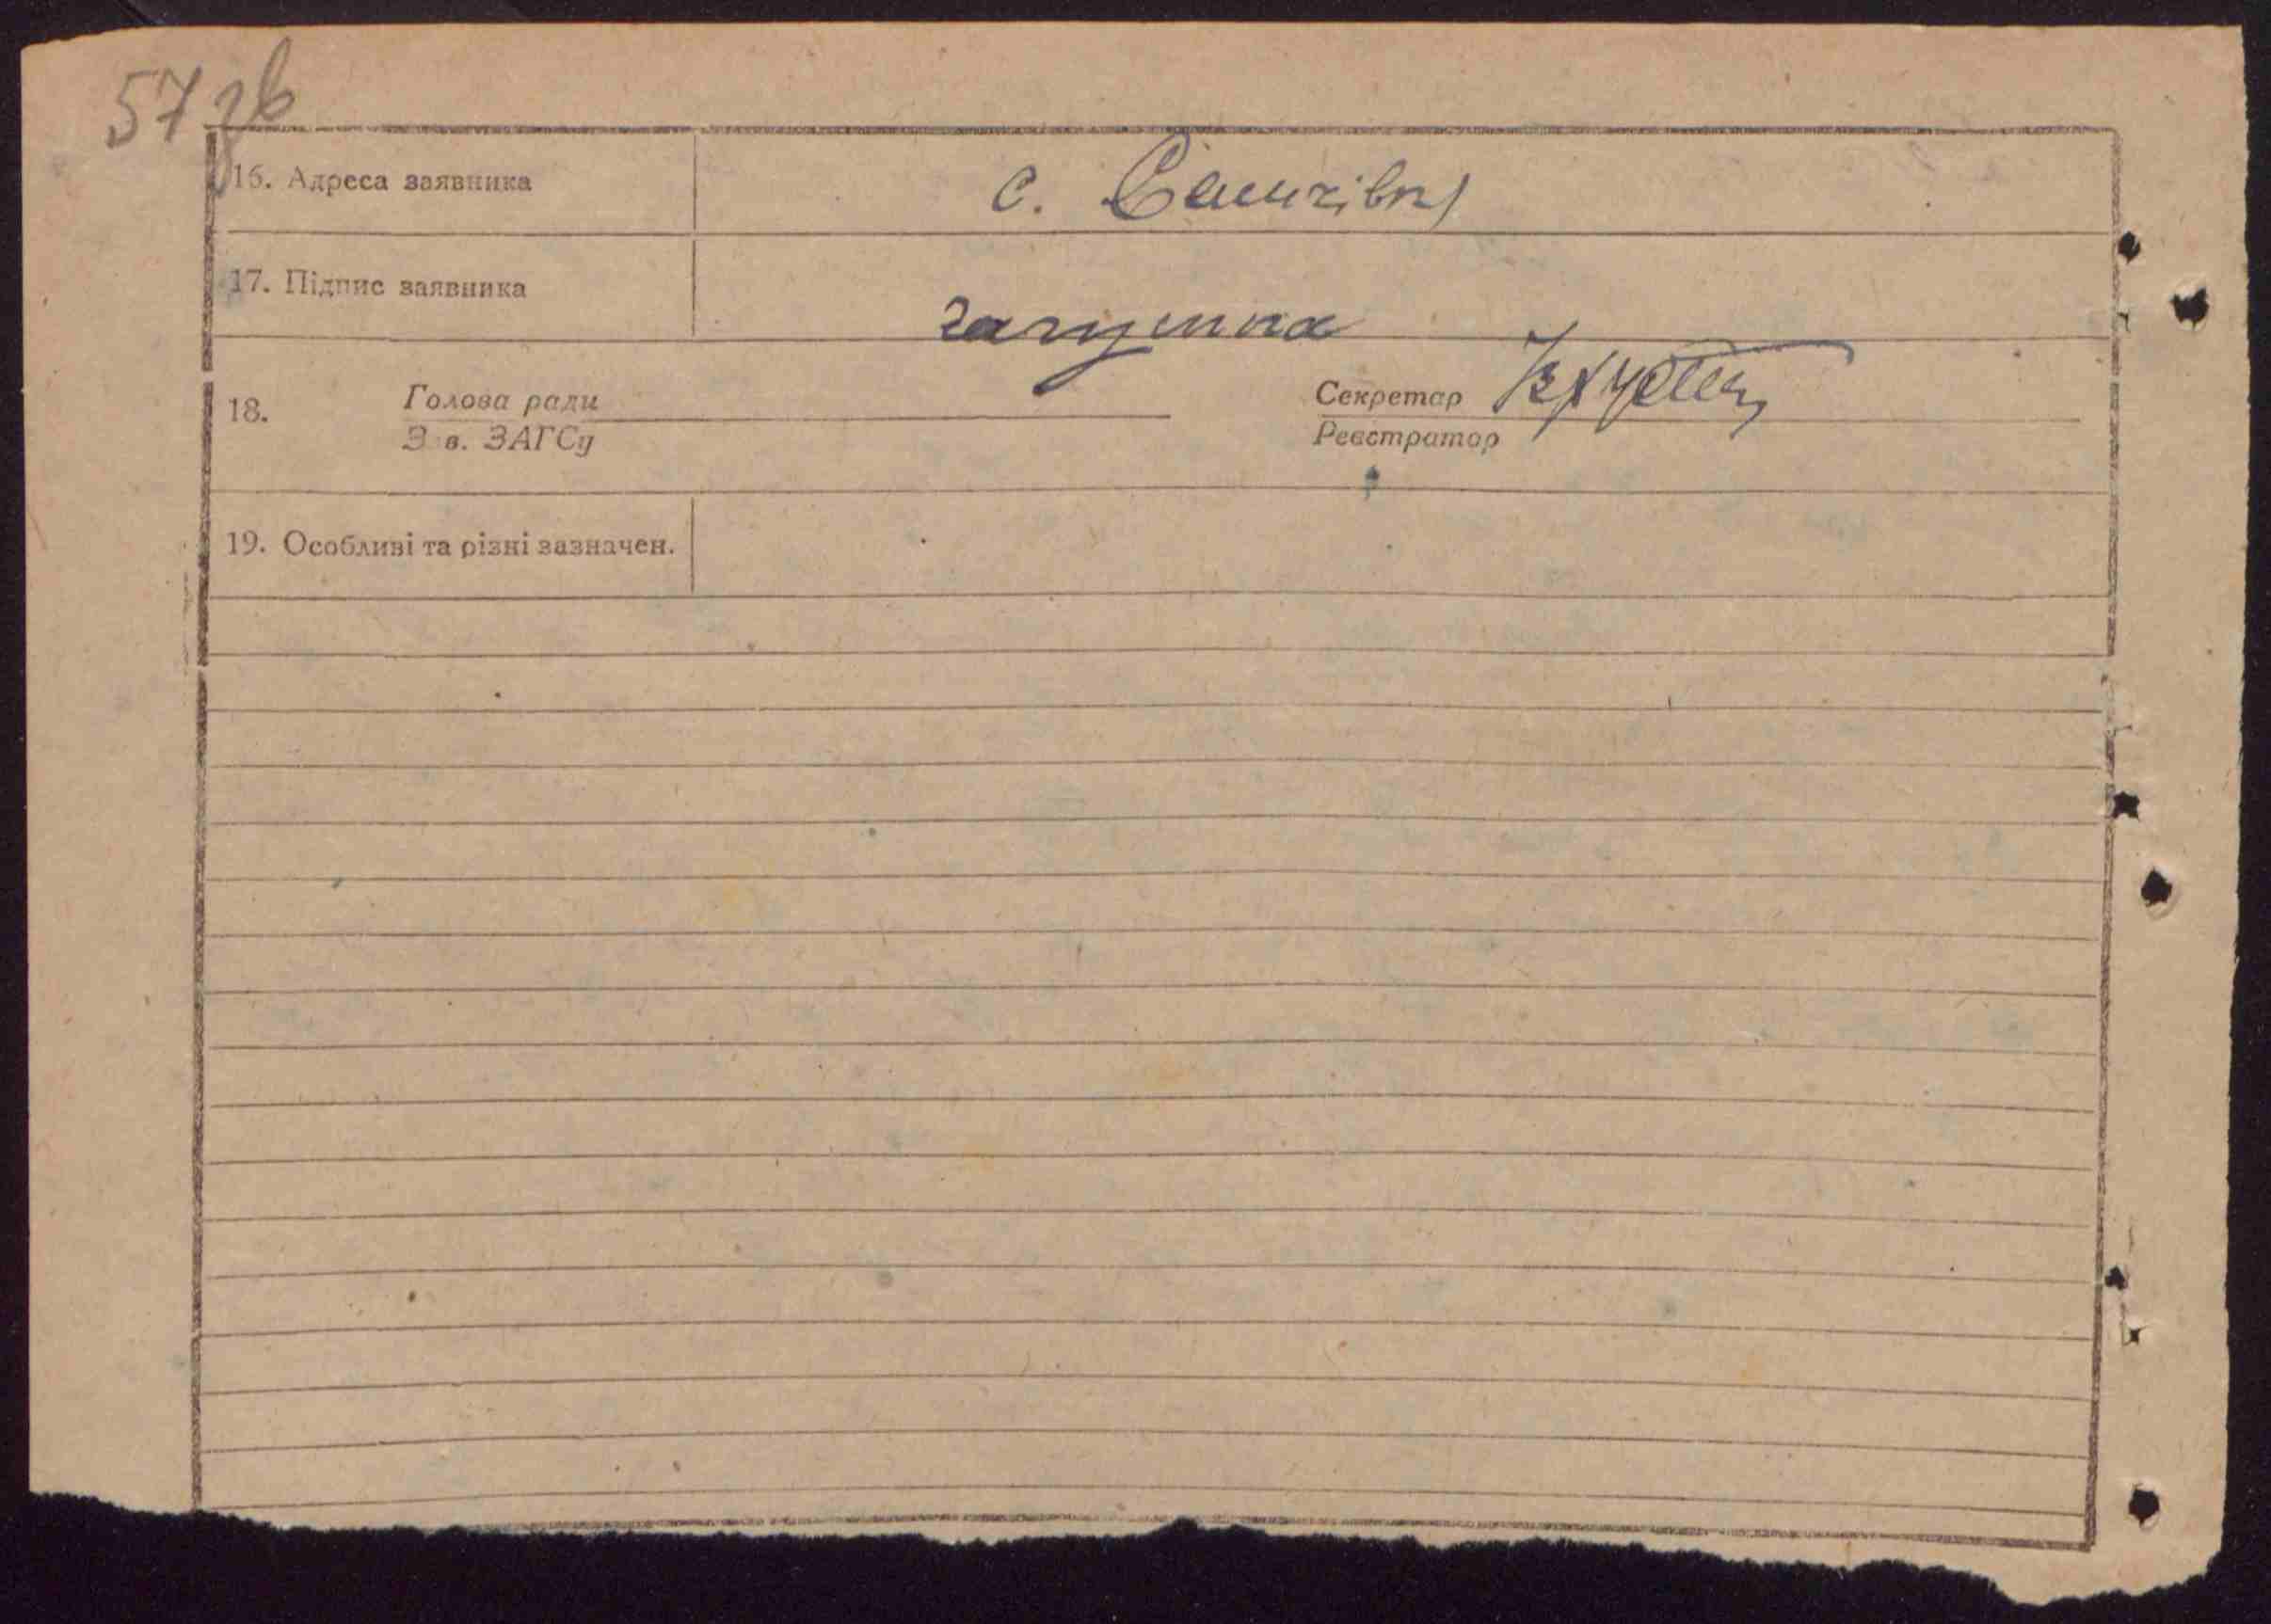 57 зв
16. Адреса заявника с.
17. Підпис заявника
18. Голова ради Секретар
Зав. ЗАГСу Реєстратор
19. Особливі та різні зазначен.